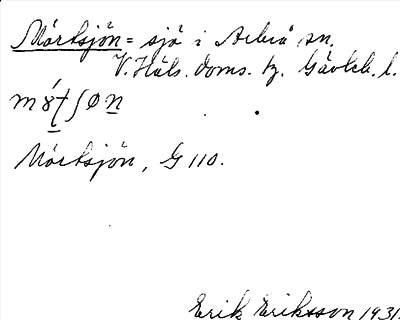 Mörtsjön = sjö i Arbrå sn.
V. Häls. doms. tz. Gävleb. l.
Mörtsjön, G 110.
Erik Eriksson 1931.